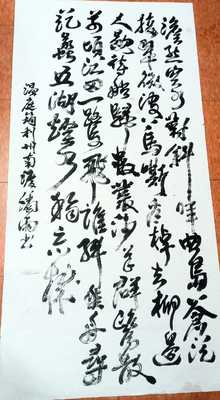 澹然空水對斜暉曲島蒼茫
接翠微波上馬嘶看棹去柳邊
人歇待船歸數叢沙草群鷗散
萬頃江田一鷺飛誰解乘舟尋
范蠡五湖煙水獨忘機
溫庭筠利州南渡 書